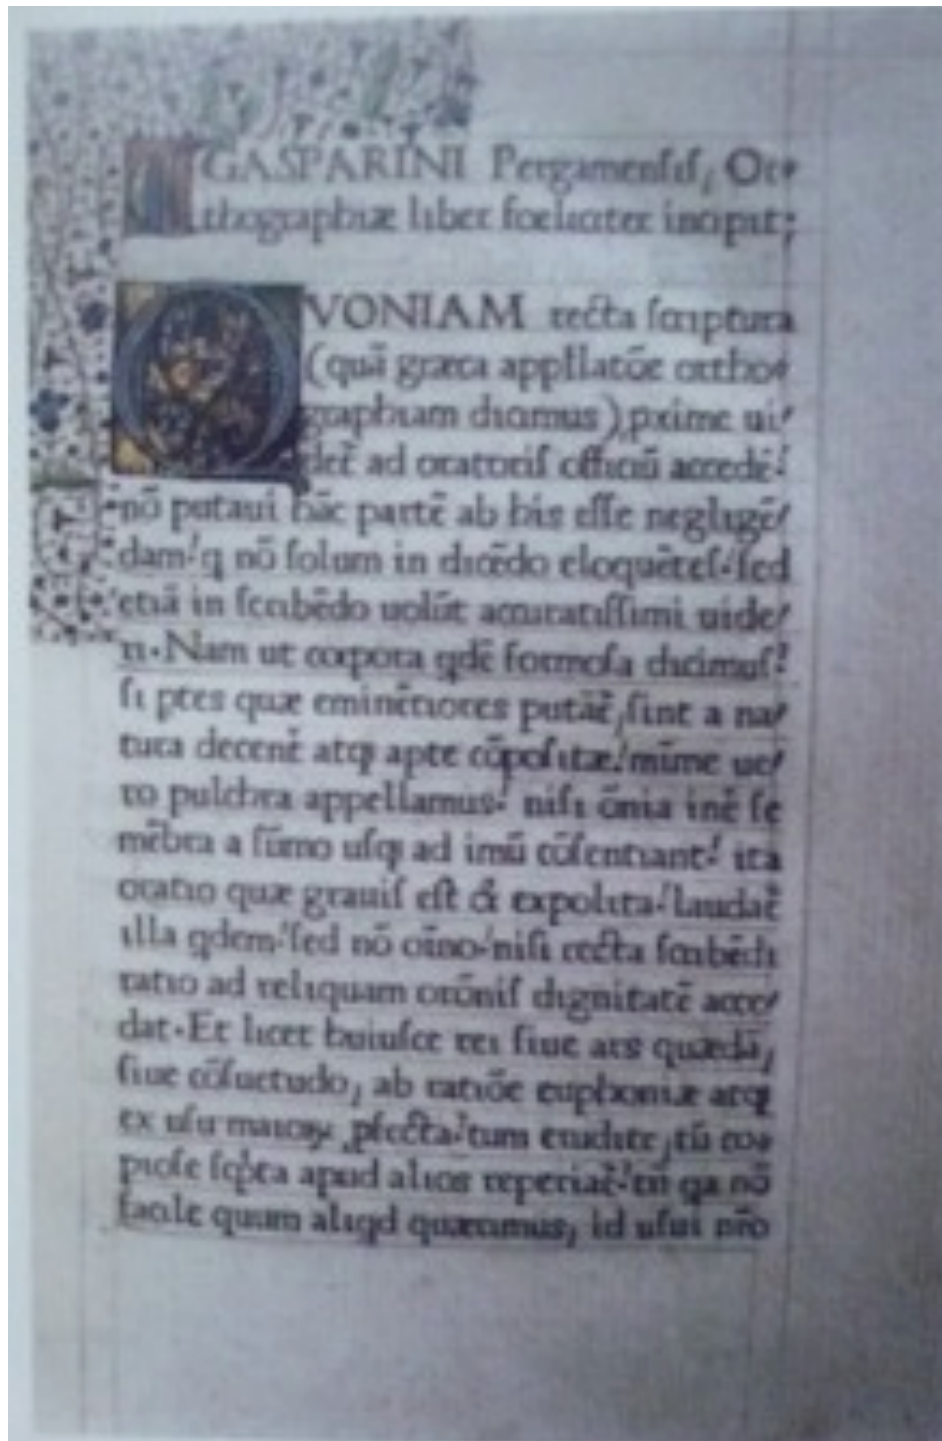 GASPARINI Pergamenſiſ, Or-
thographiæ liber foeliciter incipit;
QVONIAM recta ſcriptura
(quā græca appellatōe ortho-
graphiam dicimus) pxime ui-
det̄ ad oratoriſ officiū accede-
nō putaui hāc partē ab his eſſe negligē-
dam: q nō ſolum in dicēdo eloquēteſ: ſed
etiā in ſcribēdo uolūt accuratiſſimi uide-
ri. Nam ut corpora qdē formoſa dicimuſ:
ſi ptes quæ eminētiores putāt̄, ſint a na-
tura decent̄ atq apte cōpoſitæ: mīme ue-
ro pulchra appellamus: niſi ōnia int̄ ſe
mēbra a ſūmo uſq ad imū cōſentiant: ita
oratio quæ grauiſ eſt & expolita: laudat̄
illa qdem: ſed nō oīno: niſi recta ſcribēdi
ratio ad reliquam orōniſ dignitatē acce-
dat. Et licet huiuſce rei ſiue ars quædā,
ſiue cōſuetudo, ab ratiōe euphoniæ atq
ex uſu maioꝝ pfecta: tum erudite, tū co-
pioſe ſcpta apud alios reperiat̄: tn̄ qa nō
facile quum aliqd quærimus, id uſui nr̄o